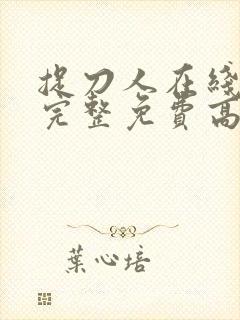 捉刀人在綫
完整免費高
葉心培